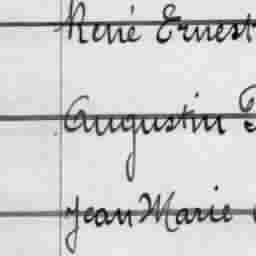 René Ernest
Augustin
Jean Marie